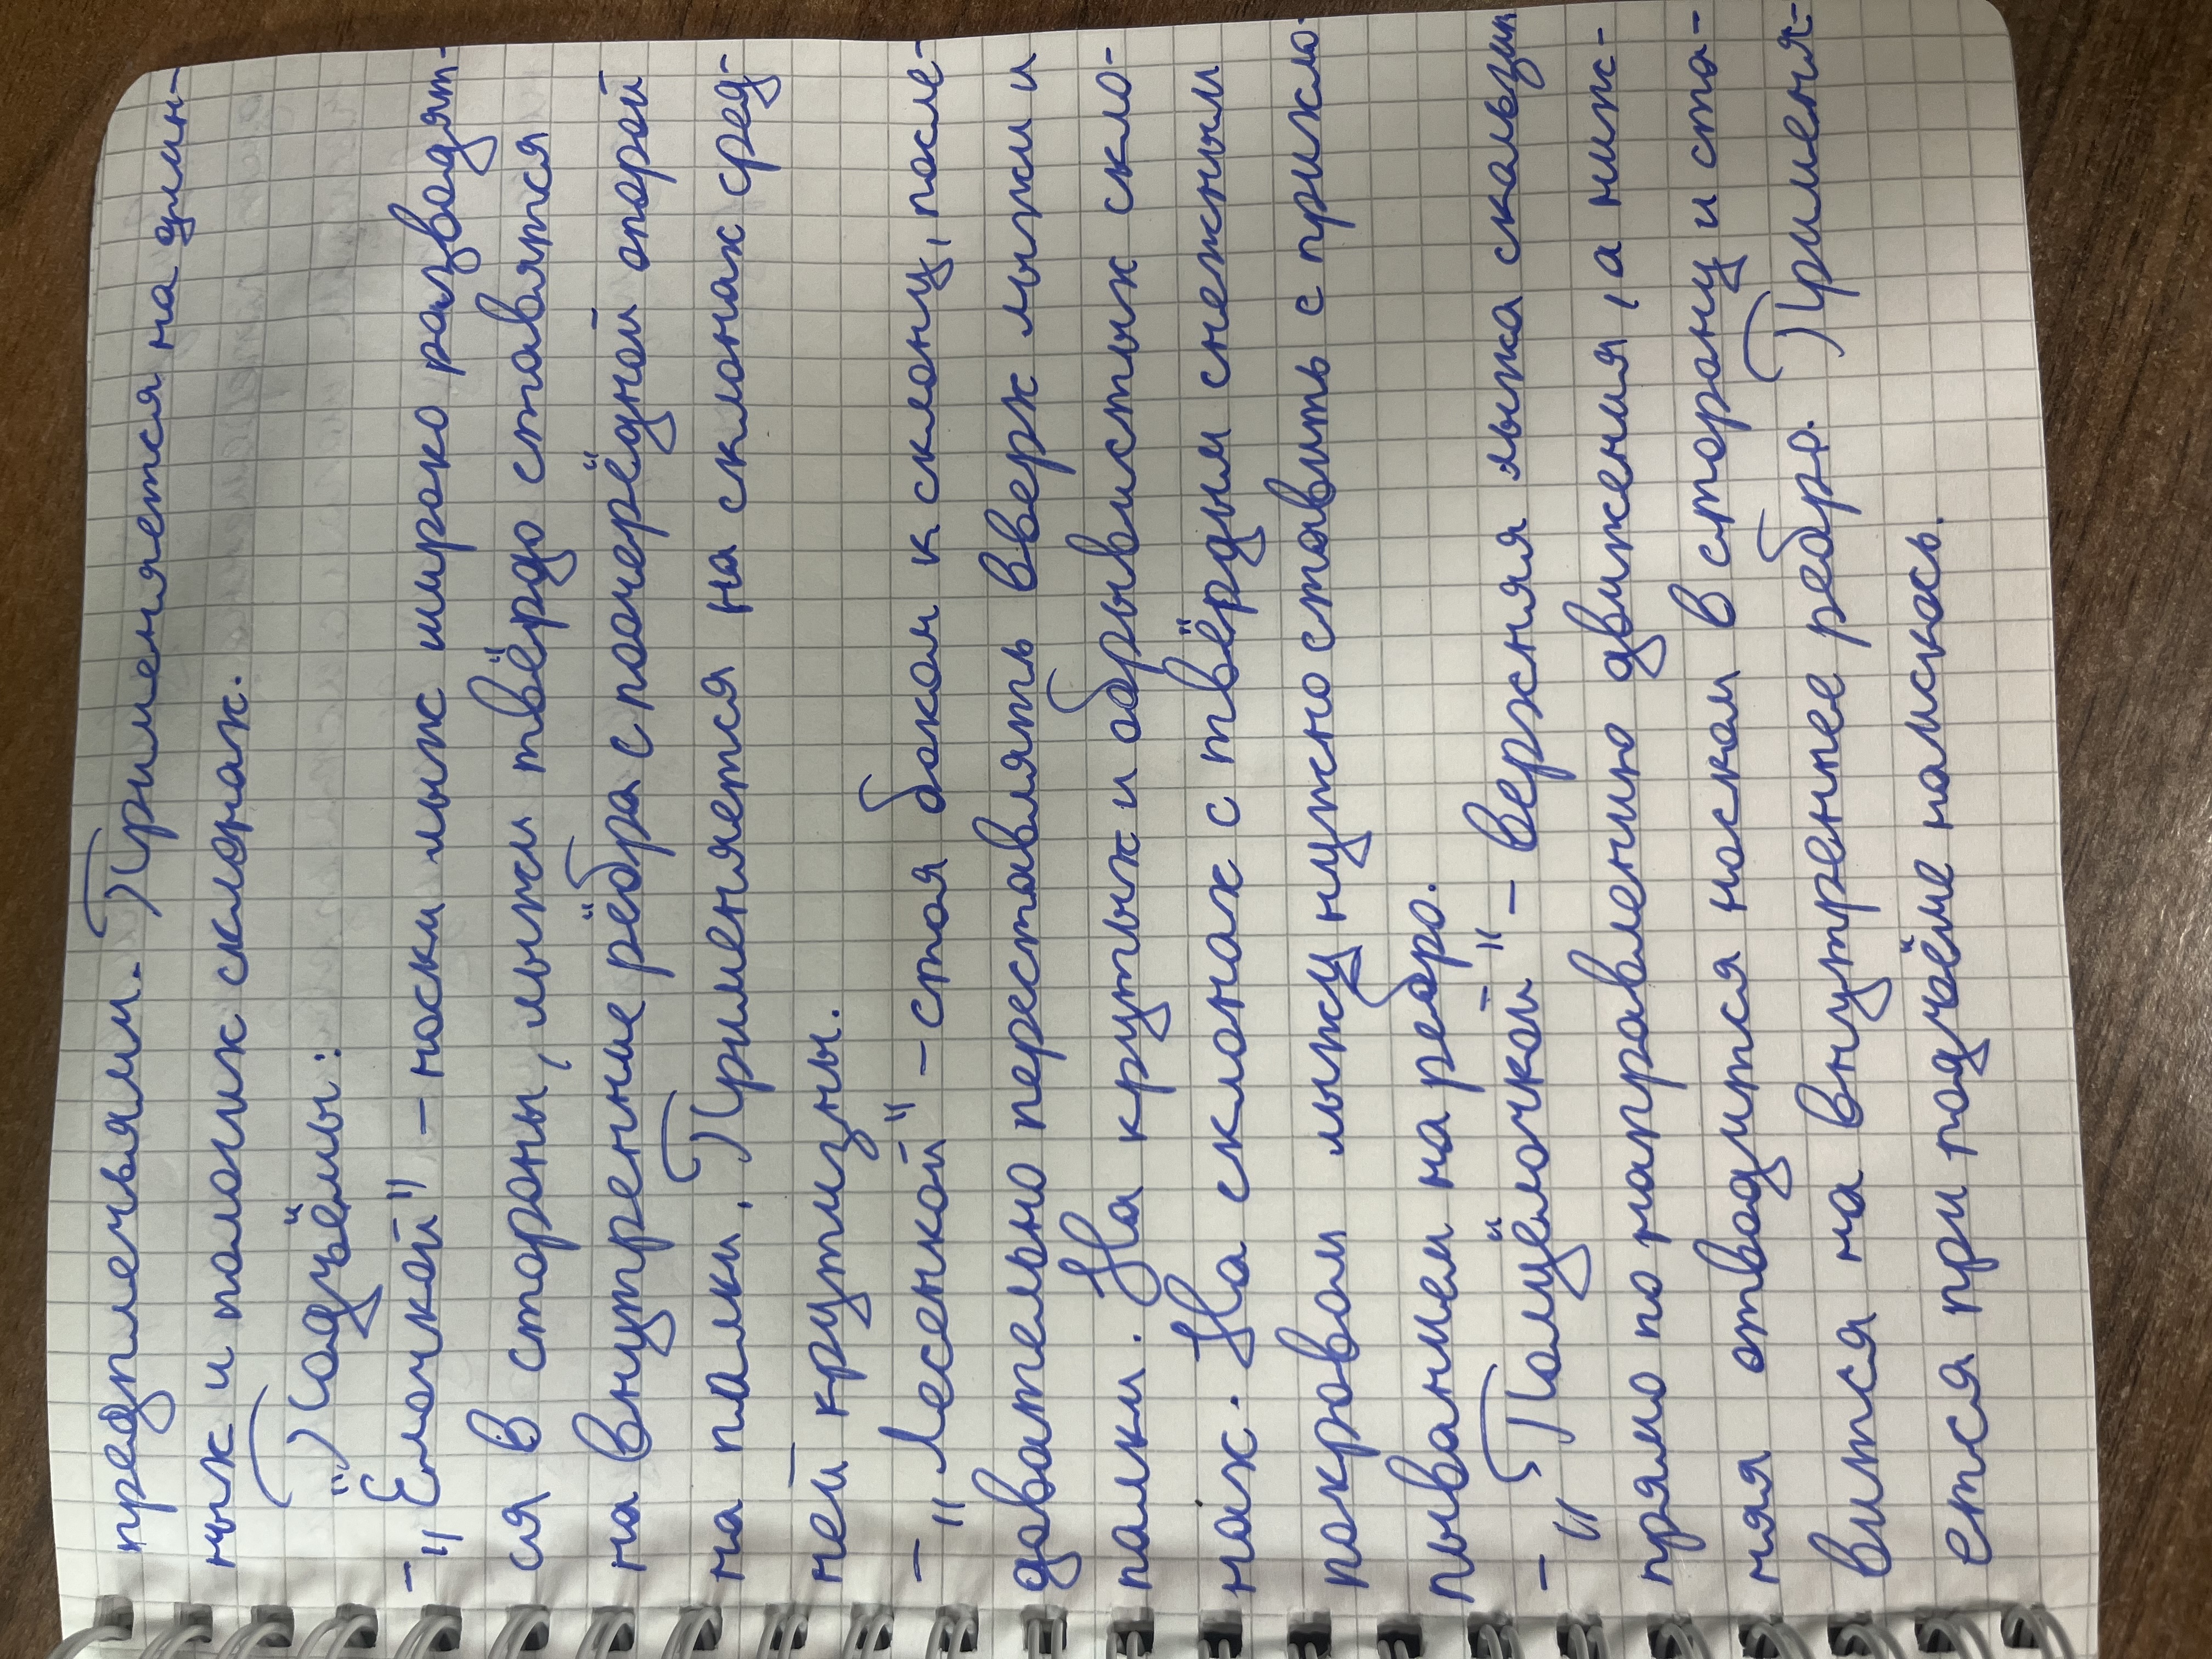 предплечьями. Применяется на длин-
ных и пологих склонах.
Подъёмы:
- "Ёлочкой" - носки лыж широко разводят-
ся в стороны, лыжи твёрдо ставятся
на внутренние рёбра с поочерёдной опорой
на палки. Применяется на склонах сред-
ней крутизны.
- "Лесенкой" - стоя боком к склону, после-
довательно переставлять вверх лыжи и
палки. На крутых и обрывистых скло-
нах. На склонах с твёрдым снежным
покровом лыжу нужно ставить с прихло-
пыванием на ребро.
- "Полуёлочкой" - верхняя лыжа скользит
прямо по направлению движения, а ниж-
няя отводится носком в сторону и ста-
вится на внутреннее ребро. Применя-
ется при подъёме наискось.